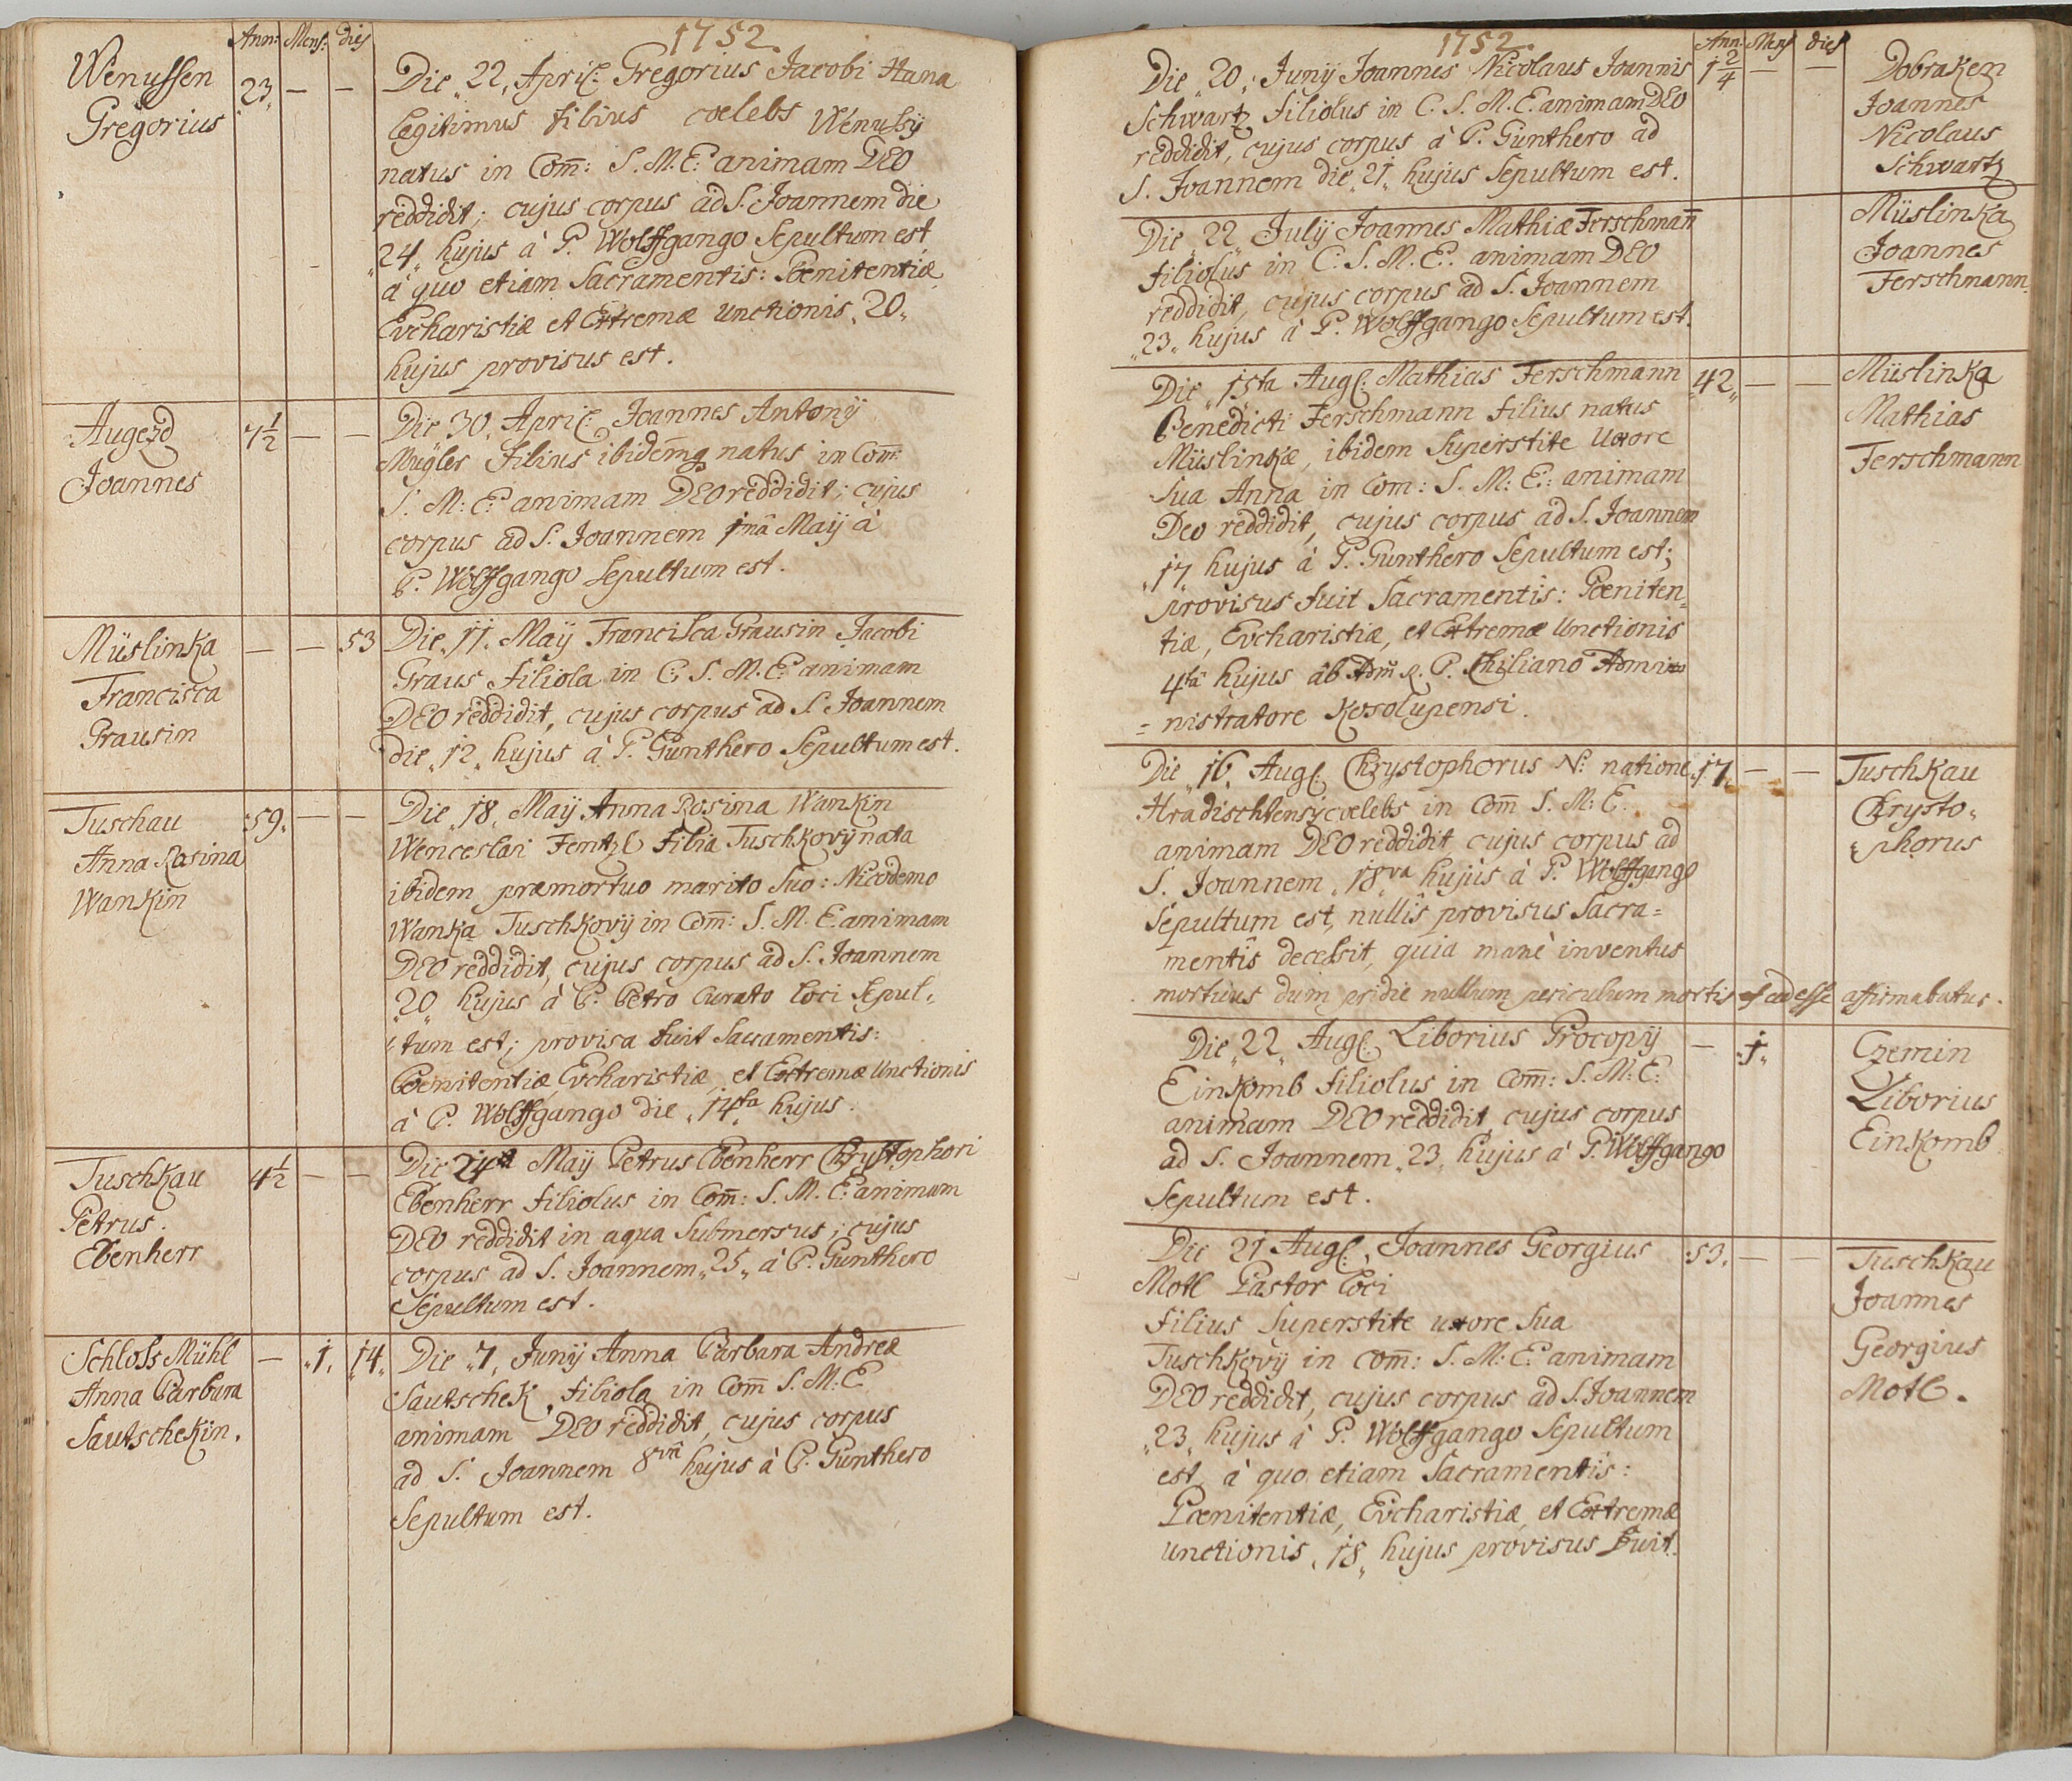 1752.
Ann: Mens: dies
Wenussen
Gregorius
23 — —
Die 22, April: Gregorius Jacobi Hana
legitimus filius coelebs Wenussÿ
natus in Com̄: S. M. E: animam DEO
reddidit; cujus corpus ad S. Joannem die
24 hujus à P. Wolffgango Sepultum est
à quo etiam Sacramentis: Pœnitentiæ
Evcharistiæ et Extremæ Unctionis 20
hujus provisus est.
Augezd
Joannes
7½ — —
Die 30, April: Joannes Antonÿ
Mugler Filius ibidemq natus in Com̄:
S. M: E: animam DEO reddidit; cujus
corpus ad S. Joannem 1mâ Maÿ à
P. Wolffgango Sepultum est.
Müslinka
Francisca
Grausin
— — 53
Die 11. Maÿ Francisca Grausin Jacobi
Graus filiola in C. S. M. E: animam
DEO reddidit, cujus corpus ad S. Joannem
die 12 hujus à P. Gunthero Sepultum est.
Tuschau
Anna Rosina
Wankin
59. — —
Die 18, Maÿ Anna Rosina Wankin
Wenceslai Fentzl filia Tuschkovÿ nata
ibidem præmortuo marito suo: Nicodemo
Wanka Tuschkovÿ in Com̄: S. M. E. animam
DEO reddidit, cujus corpus ad S. Joannem
20 hujus à P. Petro Curato loci Sepul-
tum est; provisa fuit Sacramentis:
Pœnitentiæ, Evcharistiæ, et Extremæ Unctionis
à P. Wolffgango die 14ta hujus.
Tuschkau
Petrus.
Ebenherr
4½ — —
Die 24ta Maÿ Petrus Ebenherr Chrystophori
Ebenherr filiolus in Com̄: S. M. E: animam
DEO reddidit in aqua submersus; cujus
corpus ad S. Joannem 25 à P. Gunthero
Sepultum est.
Schloss Mühl
Anna Barbara
Sautschekin.
— 1. 14.
Die 7, Junÿ Anna Barbara Andreæ
Sautschek, filiola in Com̄ S. M: E
animam DEO reddidit, cujus corpus
ad S. Joannem 8vâ hujus à P. Gunthero
Sepultum est.
1752.
Ann: Mens dies
Die 20, Junÿ Joannes Nicolaus Joannis
Schwartz filiolus in C. S. M. E. animam DEO
reddidit, cujus corpus à P. Gunthero ad
S. Joannem die 21 hujus Sepultum est.
1 2/4 — —
Dobraken
Joannes
Nicolaus
Schwartz
Die 22 Julÿ Joannes Mathiæ Ferschman̄
filiolus in C. S. M. E. animam DEO
reddidit, cujus corpus ad S. Joannem
23 hujus à P. Wolffgango Sepultum est.
Müslinka
Joannes
Ferschmann.
Die 15ta Aug: Mathias Ferschmann
Benedicti Ferschmann filius natus
Müslinkæ, ibidem Superstite Uxore
Sua Anna in Com: S. M: E: animam
Deo reddidit, cujus corpus ad S. Joannem
17 hujus à P. Gunthero Sepultum est;
provisus fuit Sacramentis: Pœniten=
tiæ, Evcharistiæ, et Extremæ Unctionis
4tâ hujus ab Adm̄ R. P. Chiliano Admi
=nistratore Kosolupensi.
42 — —
Müslinka
Mathias
Ferschmann
Die 16, Aug: Chrystophorus N: natione
Hradischtensÿ coelebs in Com̄ S. M: E.
animam DEO reddidit cujus corpus ad
S. Joannem 18va hujus à P. Wolffgango
Sepultum est, nullis provisus Sacra=
mentis decessit, quia mane inventus
mortuus dum pridie nullum periculum mortis adesse affirmabatur.
17 — —
Tuschkau
Chrysto-
phorus
Die 22 Aug: Liborius Procopÿ
Einkomb filiolus in Com̄: S. M: E:
animam DEO reddidit, cujus corpus
ad S. Joannem 23, hujus à P. Wolffgango
Sepultum est.
— 1.
Czemin
Liborius
Einkomb
Die 21 Aug: Joannes Georgius
Motl Pastor loci
filius Superstite uxore Sua
Tuschkovÿ in com̄: S. M: E: animam
DEO reddidit, cujus corpus ad S. Joannem
23 hujus à P. Wolffgango Sepultum
est, à quo etiam Sacramentis:
Pœnitentiæ, Evcharistiæ, et Extremæ
Unctionis 18, hujus provisus fuit.
53. — —
Tuschkau
Joannes
Georgius
Motl.